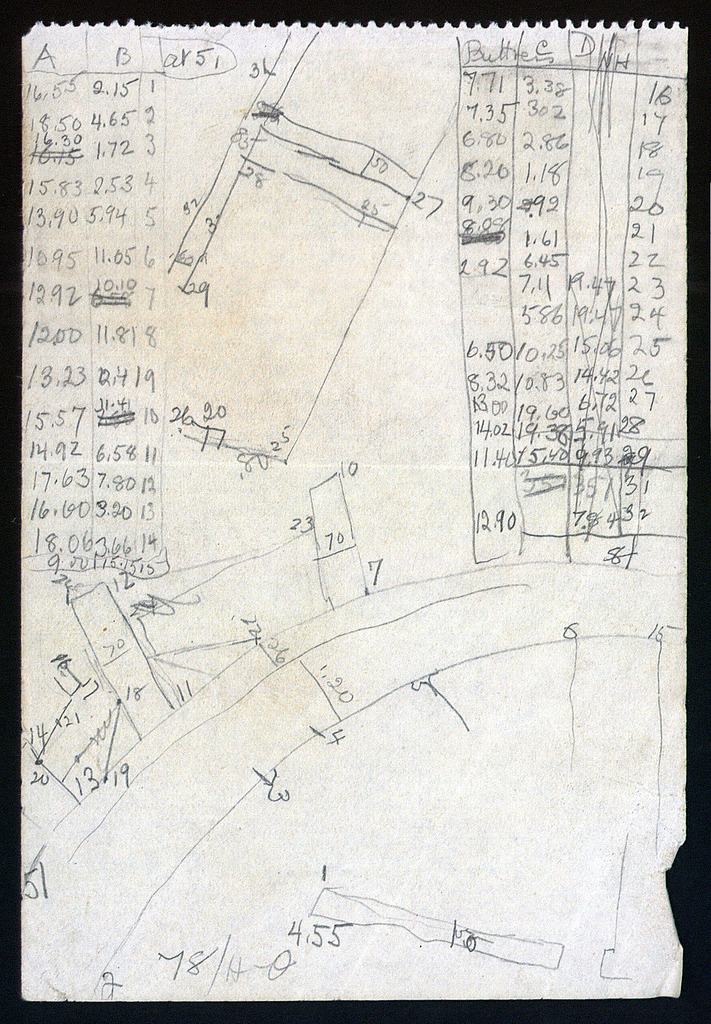 A B at 51
16.55 2.15 1
18.50 4.65 2
16.30 1.72 3
15.83 2.53 4
13.90 5.94 5
10.95 11.05 6
12.92 10.10 7
12.00 11.81 8
13.23 12.41 9
15.57 11.41 10
14.92 6.58 11
17.63 7.80 12
16.60 3.20 13
18.06 3.66 14
9.00 15.15 15
Buttress C D NH
7.71 3.38 16
7.35 302 17
6.80 2.86 18
8.20 1.18 19
9.30 2.92 20
8.08 1.61 21
2.92 6.45 22
7.11 19.47 23
5.86 19.47 24
6.50 10.25 15.06 25
8.32 10.83 14.42 26
13.00 19.60 6.72 27
14.02 19.38 5.91 28
11.40 15.40 9.93 29
3.57 31
12.90 7.84 32
31
50
28
27
25
32
3
60
29
26 20
17
25
.80
10
23
70
7
12
70
22
.26
1.20
6
15
18
11
5
14
21
4
20
13
19
3
51
1
4.55
150
2
78/H-O